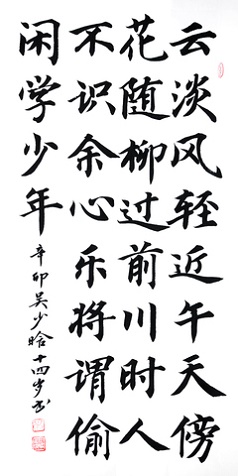 云淡风轻近午天傍
花随柳过前川时人
不识余心乐将谓偷
闲学少年
辛卯吴少晗十四岁书